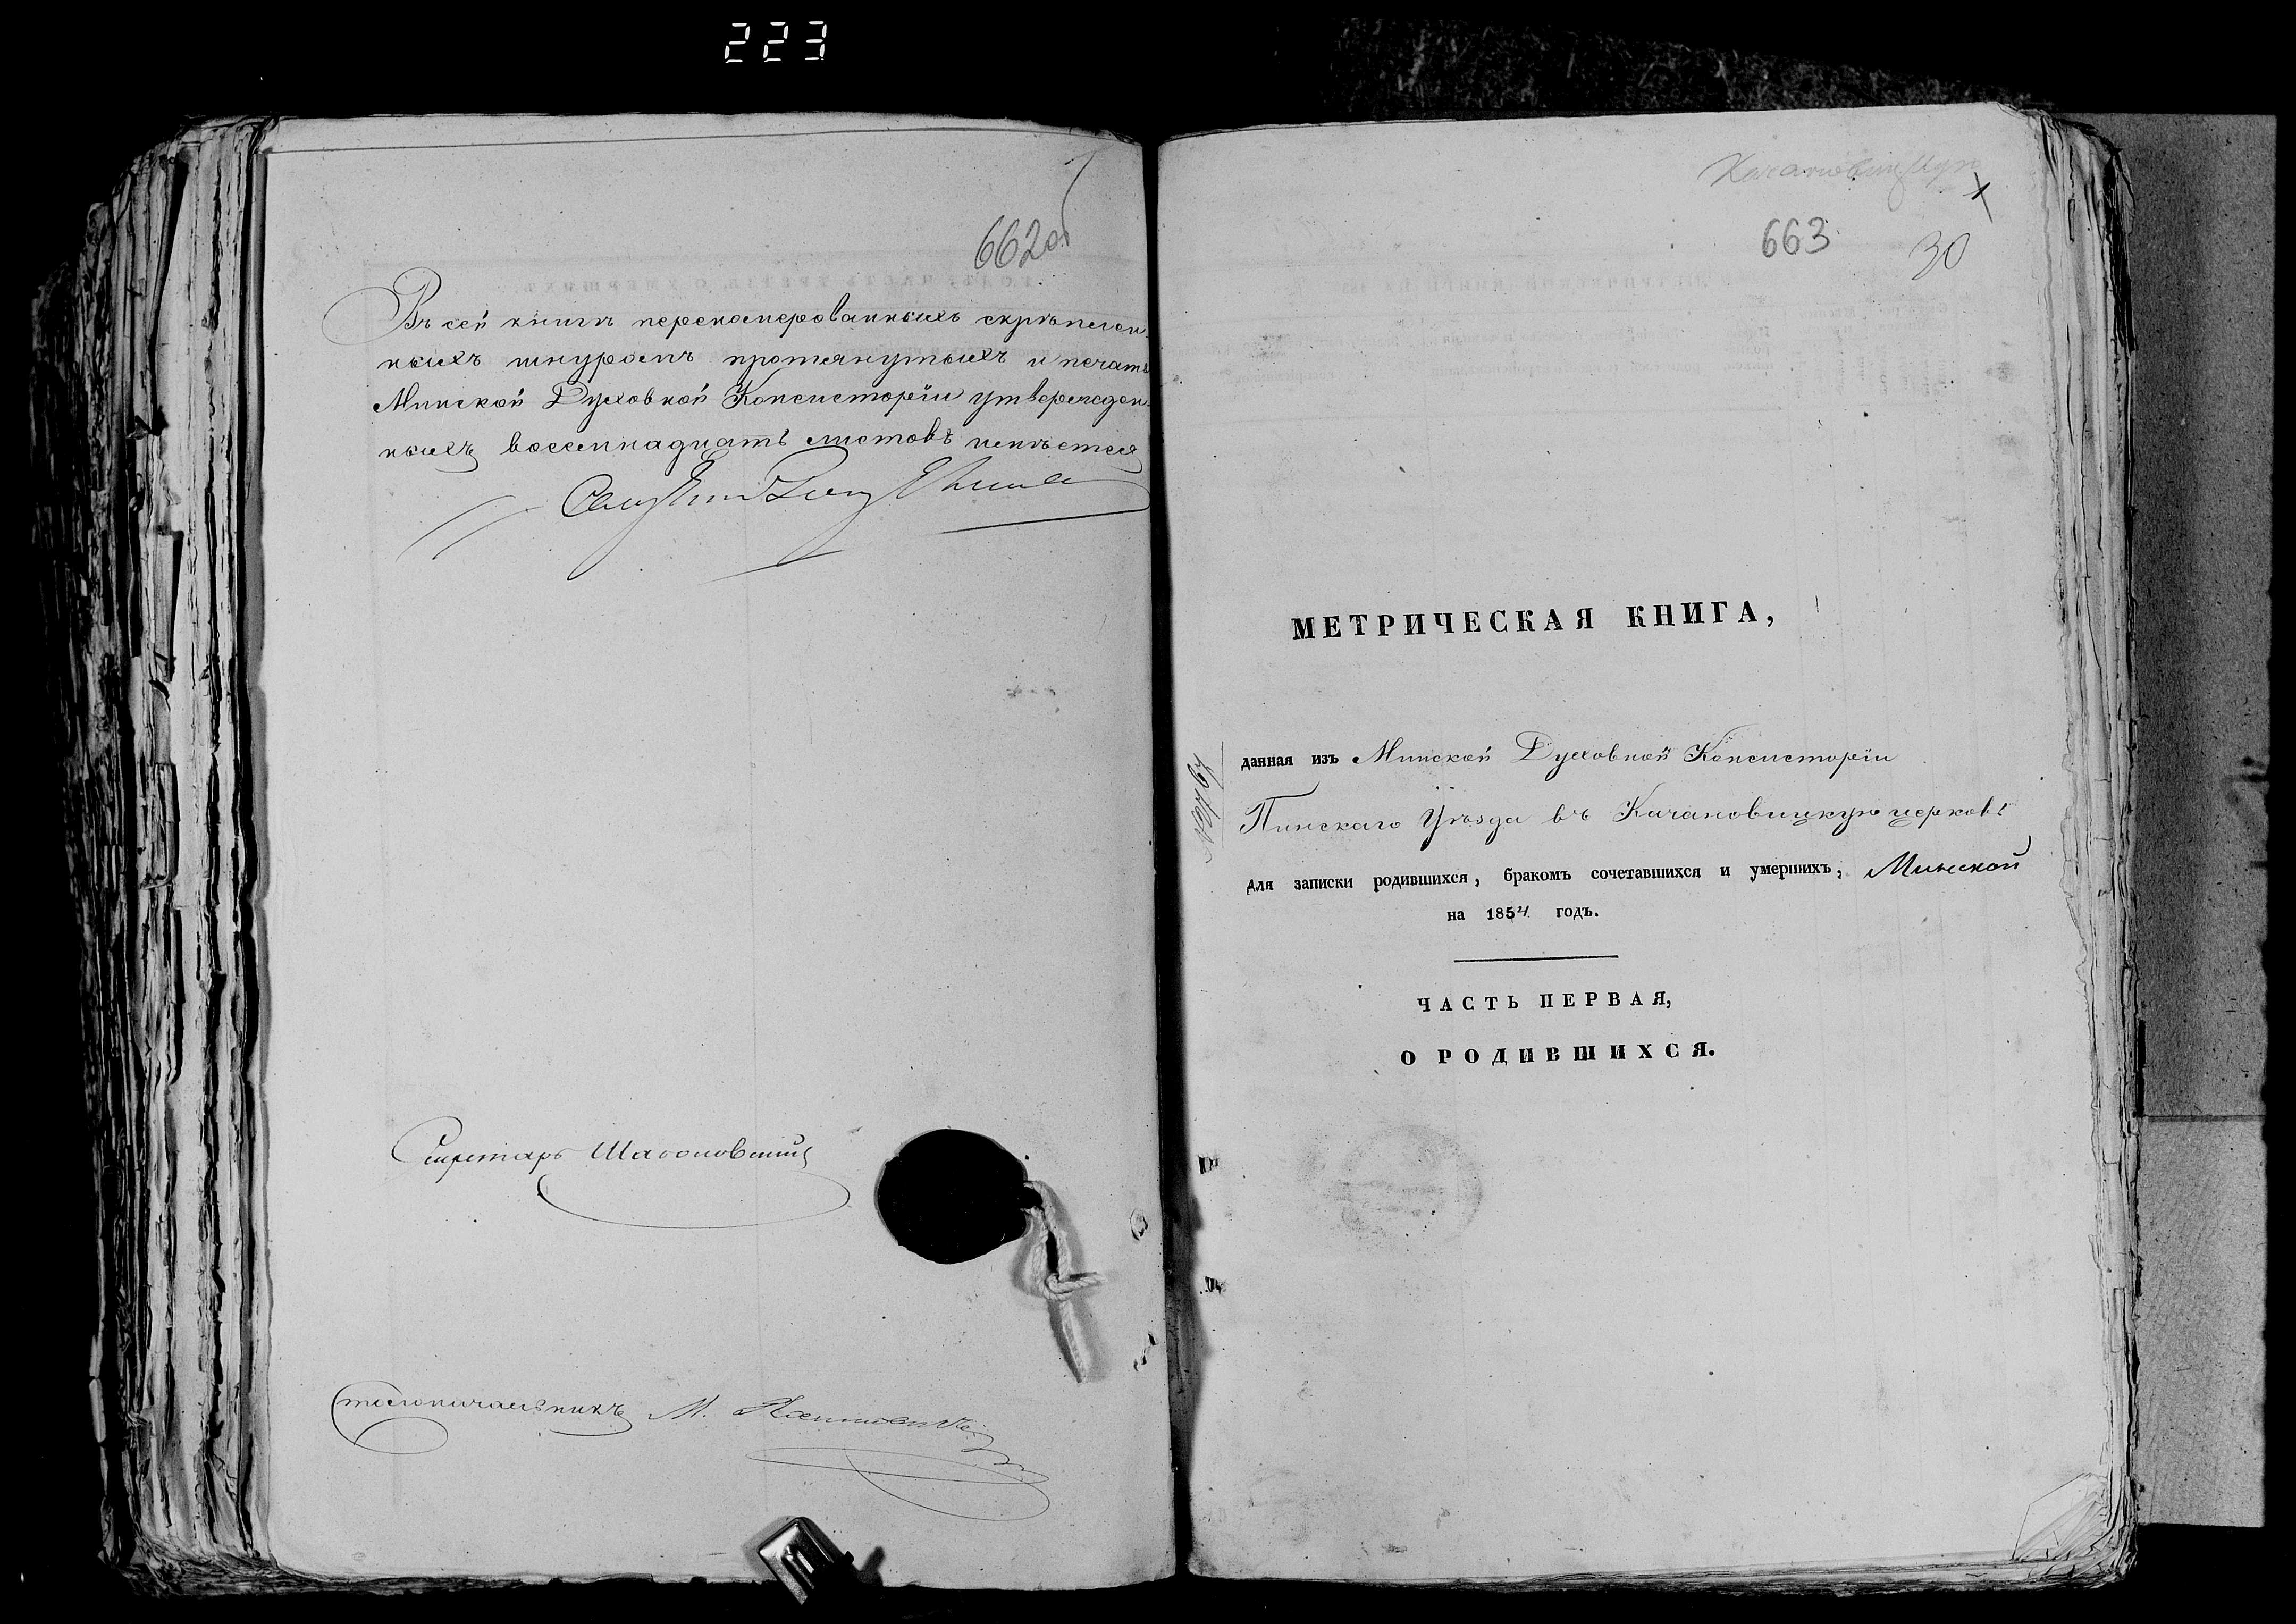 223
662об
Въ сей книгѣ переномерованныхъ скрѣплен
ныхъ шнуромъ протянутыхъ и печат
Минской Духовной Консисторіи утвержден
ныхъ восемнадцать листовъ имѣется
Секретарь
Столоначальникъ М.
663
30
МЕТРИЧЕСКАЯ КНИГА,
данная изъ Минской Духовной Консисторіи
Пинскаго Уѣзда въ Качановицкую церковь
для записки родившихся, бракомъ сочетавшихся и умершихъ, Минской
на 1854 годъ.
ЧАСТЬ ПЕРВАЯ,
О РОДИВШИХСЯ.